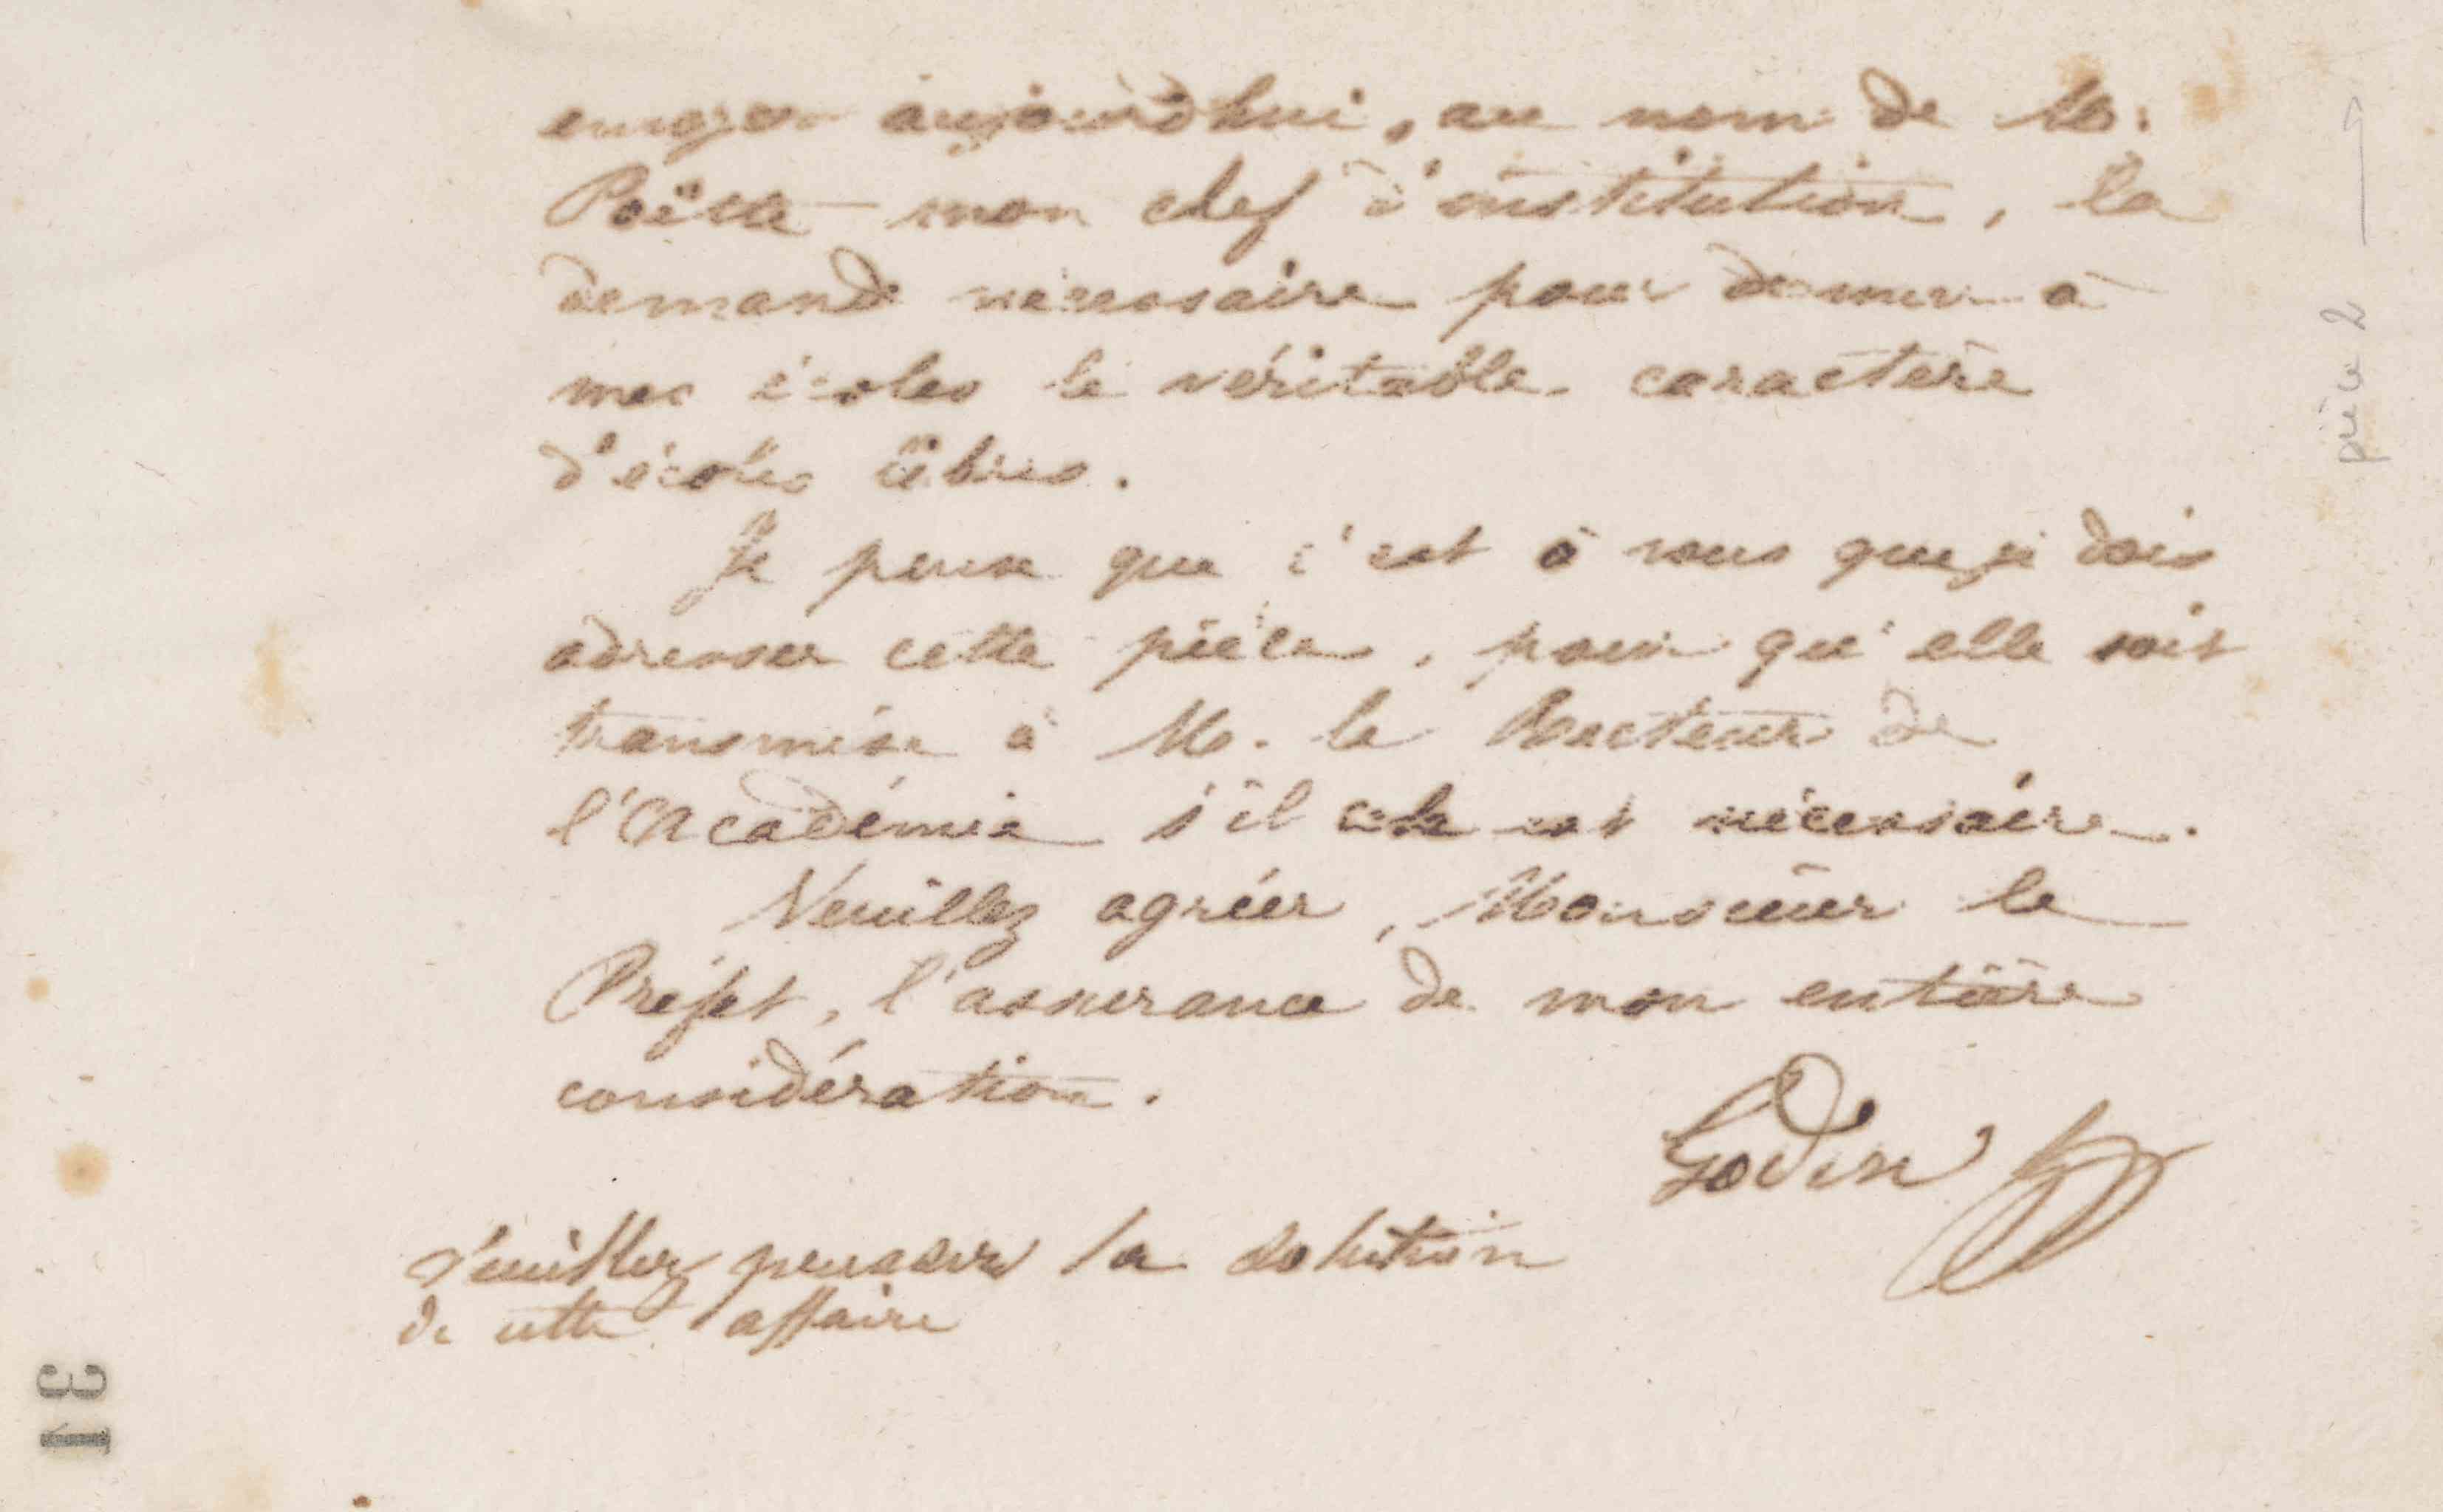 envoyer aujourd'hui, au nom de M.
Poëtte mon chef d'institution, la
demande nécessaire pour donner à
mes écoles le véritable caractère
d'écoles libres.
Je pense que c'est à vous que je dois
adresser cette pièce, pour qu'elle soit
transmise à M. le Recteur de
l'Académie s'il est nécessaire.
Veuillez agréer, Monsieur le
Préfet, l'assurance de mon entière
considération.
Godin
Veuillez presser la solution
de cette affaire
pièce 2
31